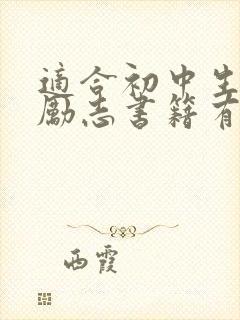 適合初中生
勵志書籍有
西霞